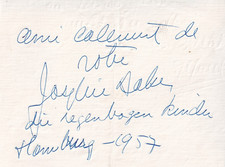 amicalement de
votre
Josephine Baker
die regenbogen kinder
Hamburg - 1957